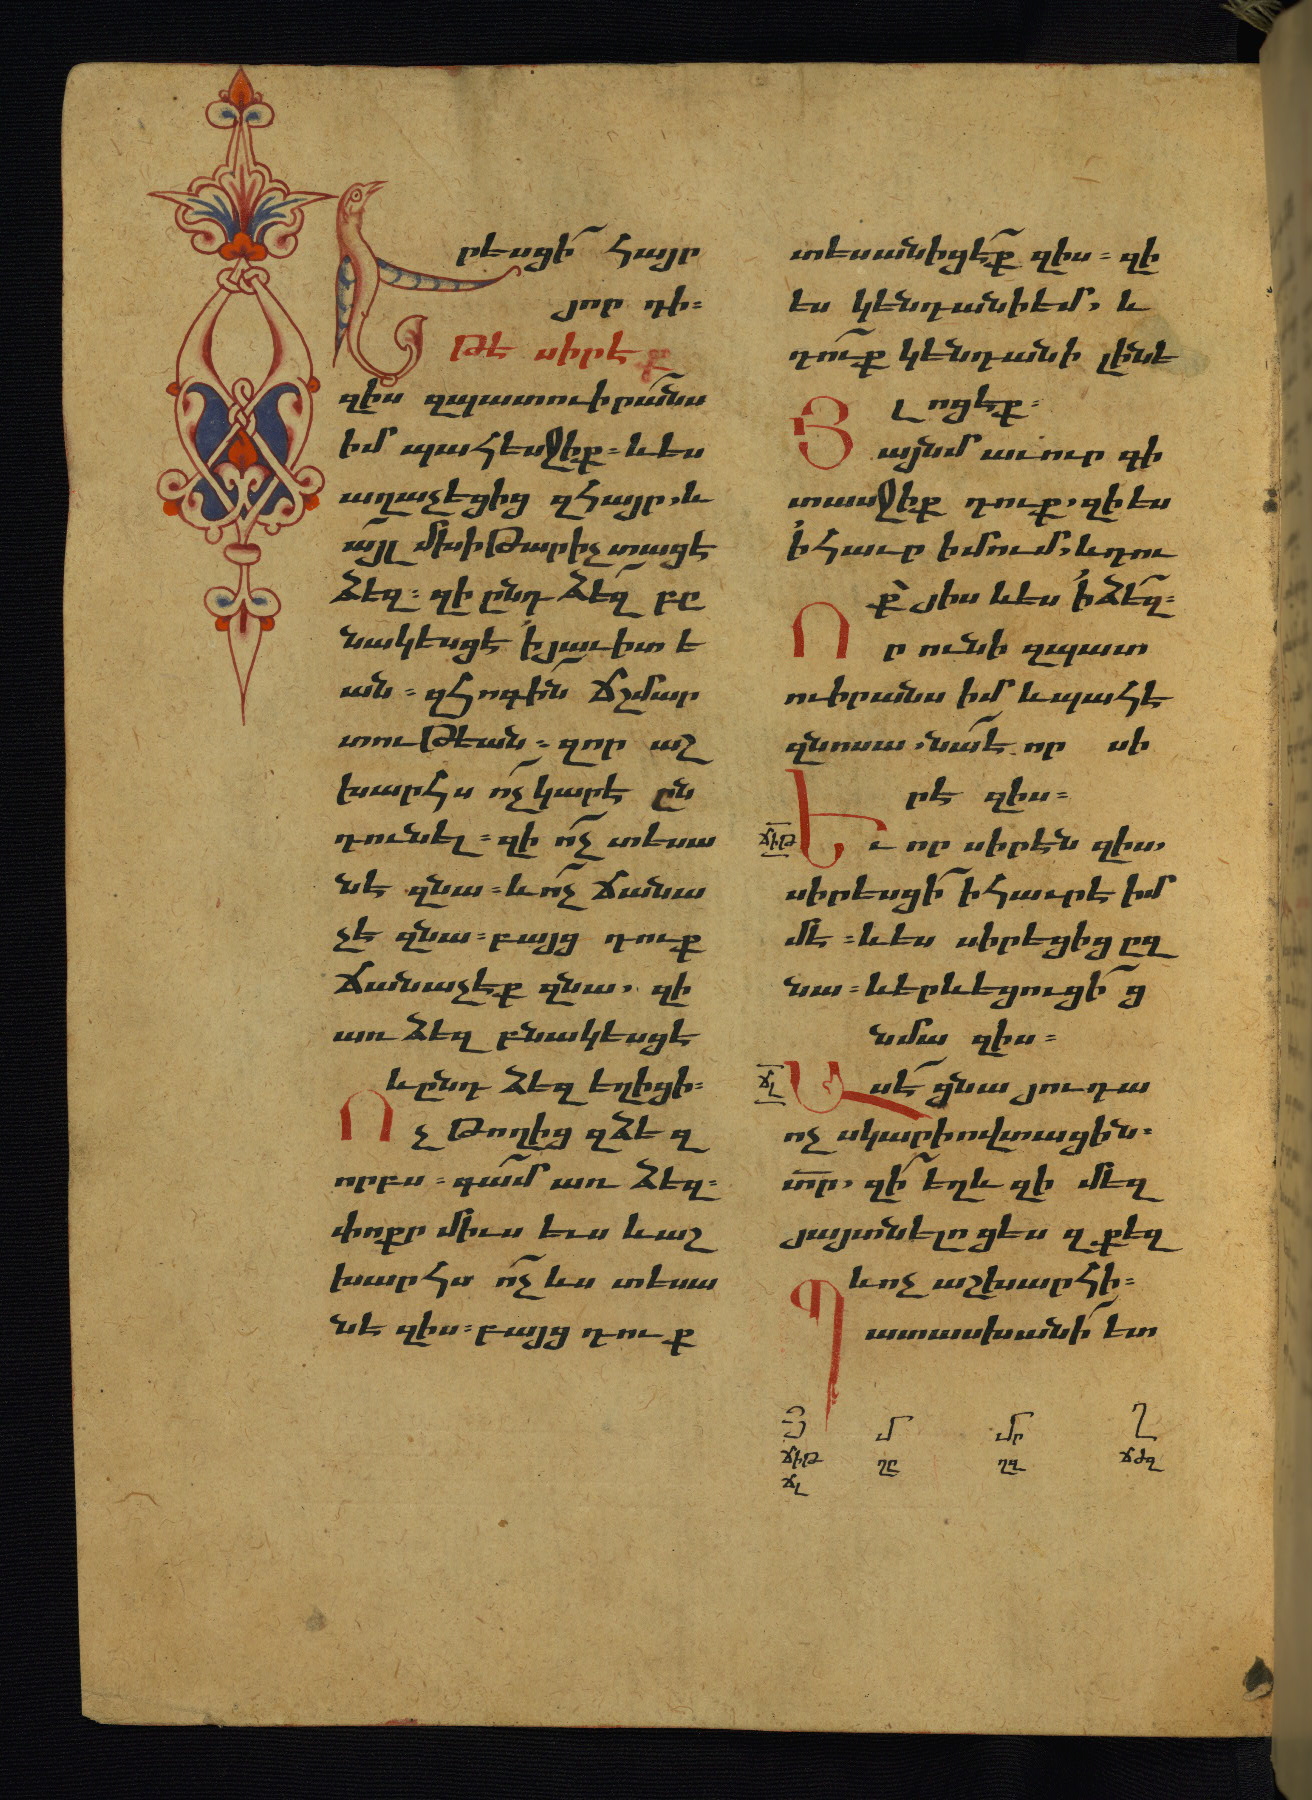 րեսցի հայր
յոր դի։
Թէ սիրէք
զիս զպատուիրանս
իմ պահեսջիք։ և ես
աղաչեցից զհայր, և
այլ մխիթարիչ տացէ
ձեզ։ զի ընդ ձեզ բը
նակեսցէ ի յաւիտե
ան։ զհոգին ճշմար
տութեան։ զոր աշ
խարհս ոչ կարէ ըն
դունել։ զի ոչ տեսա
նէ զնա։ և ոչ ճանա
չէ զնա։ բայց դուք
ճանաչէք զնա, զի
առ ձեզ բնակեսցէ
և ընդ ձեզ եղիցի։
Ոչ թողից զձեզ
որբս։ գամ առ ձեզ։
փոքր միւս ևս և աշ
խարհս ոչ ևս տեսա
նէ զիս։ բայց դուք
տեսանիցէք զիս։ զի
ես կենդանի եմ, և
դուք կենդանի լինե
լոցէք։
Յայնմ աւուր գի
տասջիք դուք, զի ես
ի հաւր իմում, և դու
ք յիս և ես ի ձեզ։
Որ ունի զպատ
ուիրանս իմ և պահէ
զնոսա, նա է որ սի
րէ զիս։
ճիթ
Եւ որ սիրէն զիս,
սիրեսցի ի հաւրէ իմ
մէ։ և ես սիրեցից ըզ
նա։ և երևեցուցից
նմա զիս։
ճլ
Ասէ ցնա յուդա
ոչ սկարիովտացին։
տր, զի եղև զի մեզ
յայտնելոց ես զքեզ
և ոչ աշխարհի։
Պատասխանի ետ
Յ մ մր Ղ
ճիթ ղը ղզ ճժզ
ճլ